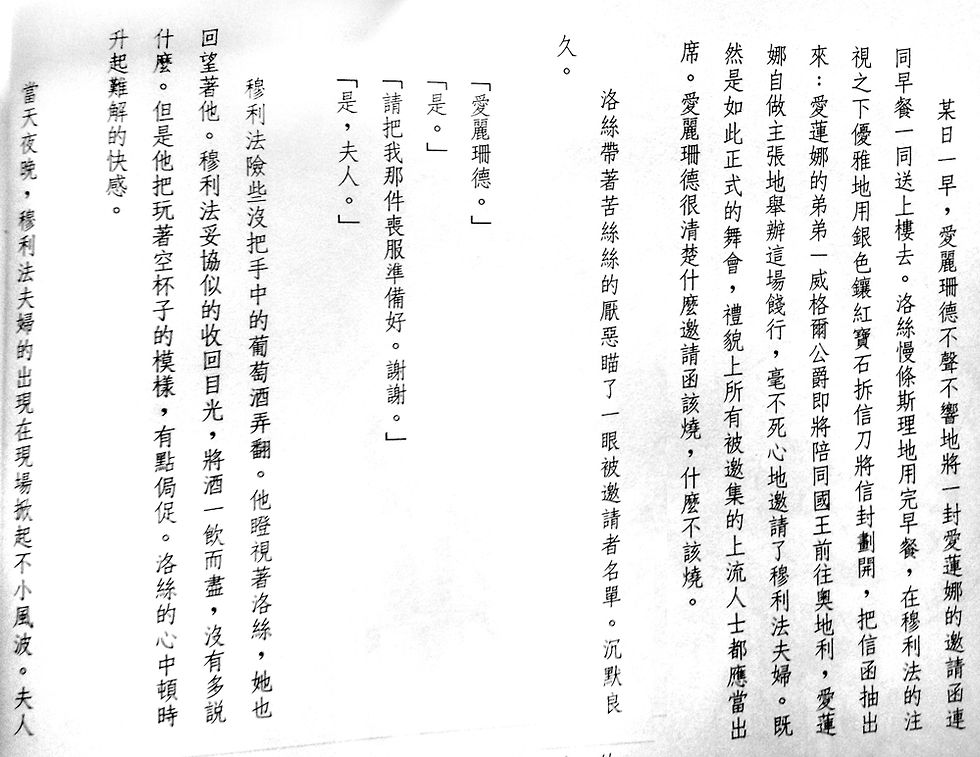 某日一早，愛麗珊德不聲不響地將一封愛蓮娜的邀請函連
同早餐一同送上樓去。洛絲慢條斯理地用完早餐，在穆利法的注
視之下優雅地用銀色鑲紅寶石拆信刀將信封劃開，把信函抽出
來：愛蓮娜的弟弟－威格爾公爵即將陪同國王前往奧地利，愛蓮
娜自做主張地舉辦這場餞行，毫不死心地邀請了穆利法夫婦。既
然是如此正式的舞會，禮貌上所有被邀集的上流人士都應當出
席。愛麗珊德很清楚什麼邀請函該燒，什麼不該燒。
洛絲帶著苦絲絲的厭惡瞄了一眼被邀請者名單。沉默良
久。
「愛麗珊德。」
「是。」
「請把我那件喪服準備好。謝謝。」
「是，夫人。」
穆利法險些沒把手中的葡萄酒弄翻。他瞪視著洛絲，她也
回望著他。穆利法妥協似的收回目光，將酒一飲而盡，沒有多説
什麼。但是他把玩著空杯子的模樣，有點侷促。洛絲的心中頓時
升起難解的快感。
當天夜晚，穆利法夫婦的出現在現場掀起不小風波。夫人